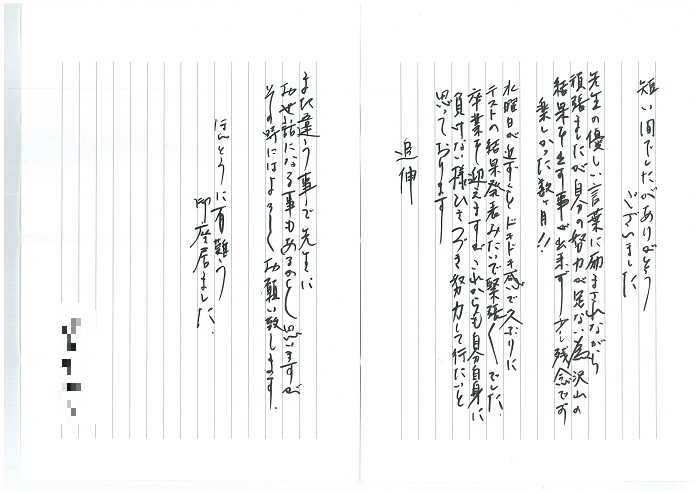 短い間でしたがありがとう
ございました
先生の優しい言葉に励まされながら
頑張ましたが自分の努力が足ない為沢山の
結果を出す事が出来ず少し残念です
楽しかった数ヶ月!!
水曜日が近ずくとドキドキ感で久ぶりに
テストの結果発表みたいで緊張してでした
卒業を迎えますがこれからも自分自身に
負けない様ひきつづき努力して行たいと
思っております
追伸
また違う事で先生に
お世話になる事もあるのかと思いますが
その時にはよろしくお願い致します.
ほんとうに有難う
御座居ました.